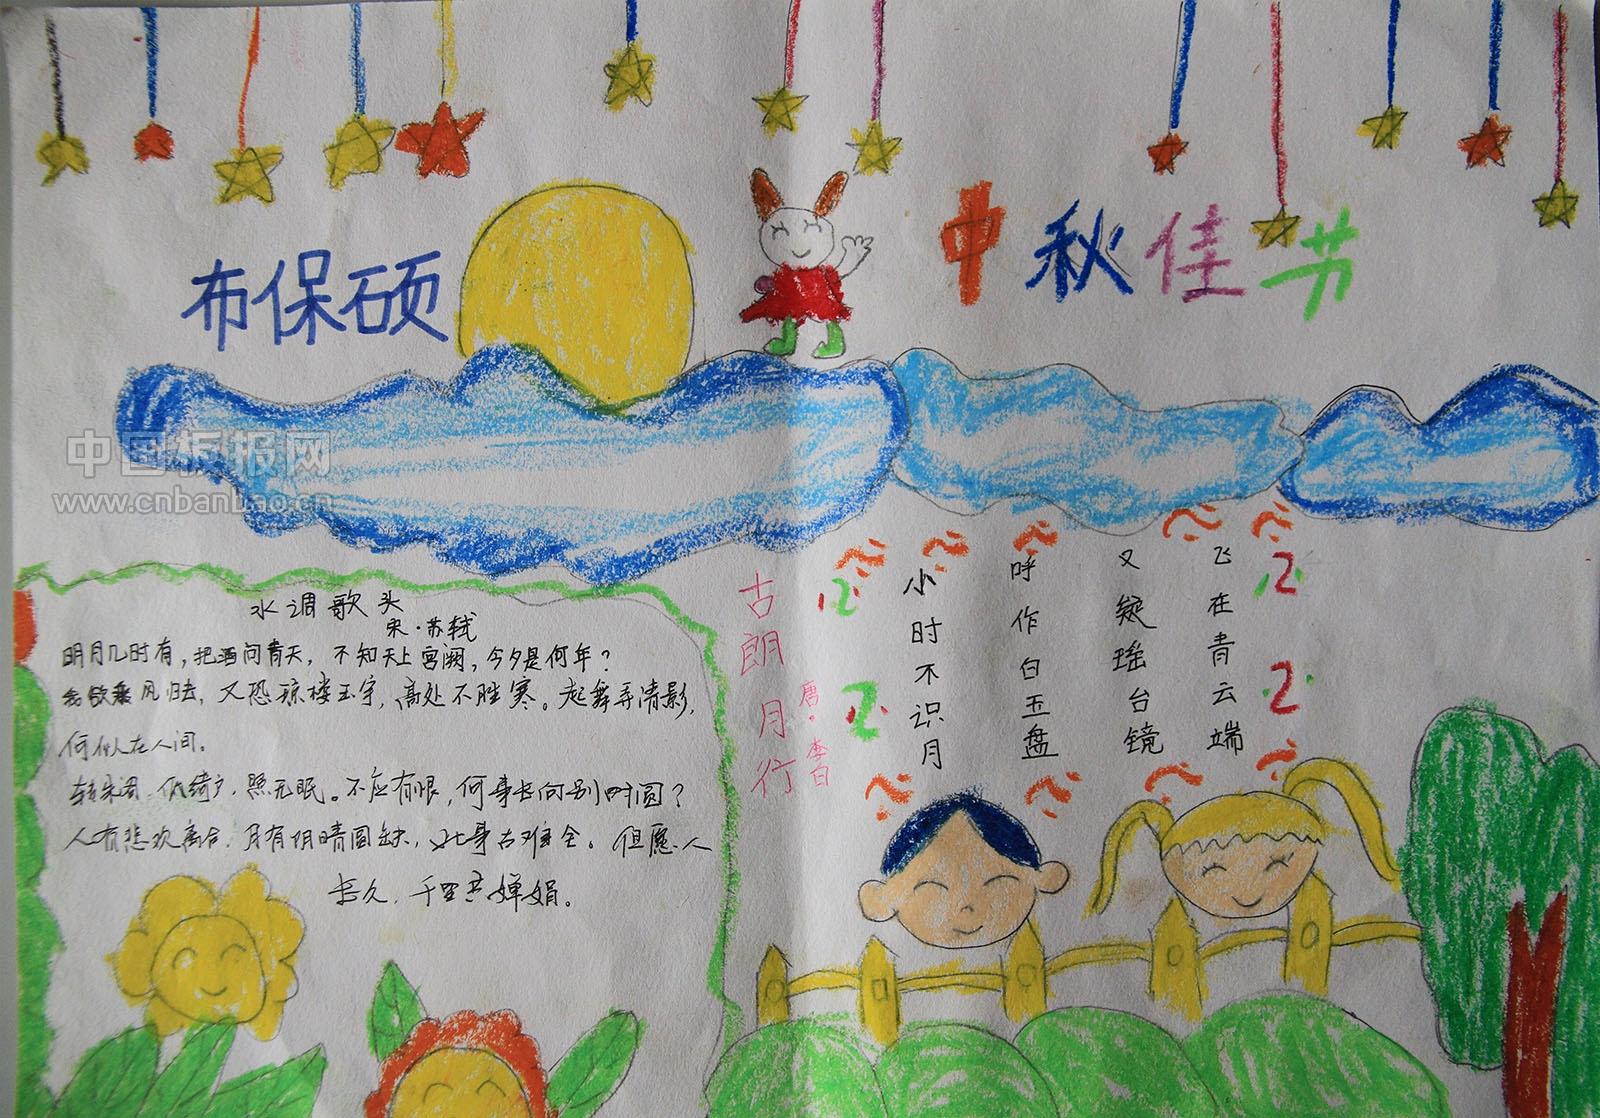 布保硕
中秋佳节
中国板报网
www.cnbanbao.cn
水调歌头
宋·苏轼
明月几时有,把酒问青天,不知天上宫阙,今夕是何年?
我欲乘风归去,又恐琼楼玉宇,高处不胜寒。起舞弄清影,
何似在人间。
转朱阁,低绮户,照无眠。不应有恨,何事长向别时圆?
人有悲欢离合,月有阴晴圆缺,此事古难全。但愿人
长久,千里共婵娟。
古朗月行
唐·李白
小时不识月
呼作白玉盘
又疑瑶台镜
飞在青云端